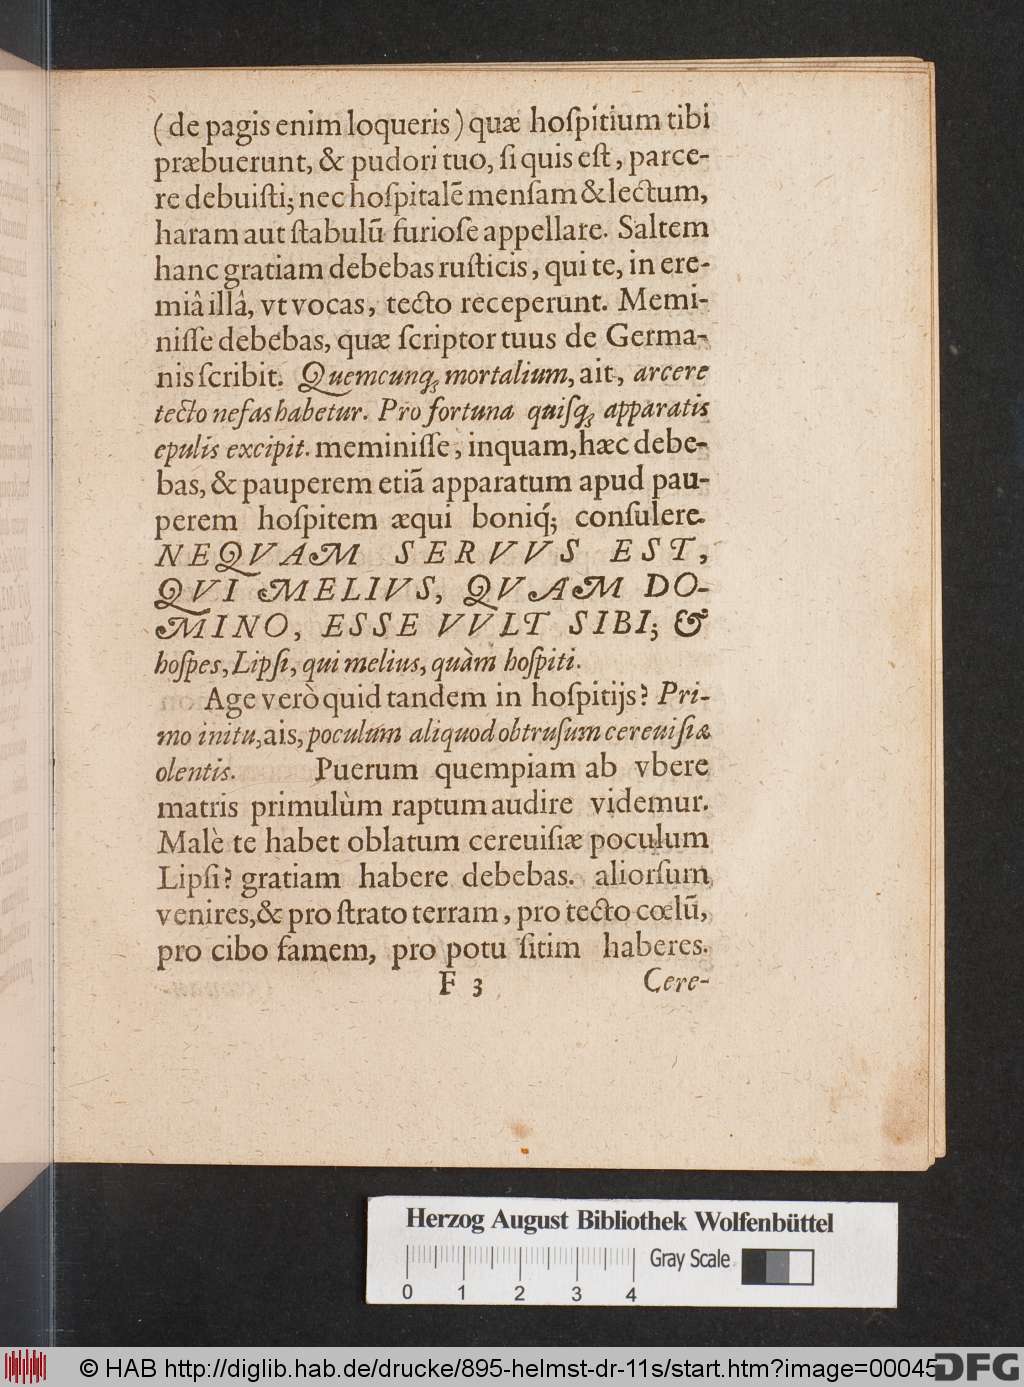 (de pagis enim loqueris) quæ hoſpitium tibi
præbuerunt, & pudori tuo, ſi quis eſt, parce-
re debuiſti; nec hoſpitalē menſam & lectum,
haram aut ſtabulū furioſe appellare. Saltem
hanc gratiam debebas ruſticis, qui te, in ere-
miâ illâ, vt vocas, tecto receperunt. Memi-
niſſe debebas, quæ ſcriptor tuus de Germa-
nis ſcribit. Quemcunq; mortalium, ait, arcere
tecto nefas habetur. Pro fortuna quiſq; apparatis
epulis excipit. meminiſſe, inquam, hæc debe-
bas, & pauperem etiā apparatum apud pau-
perem hoſpitem æqui boniq́; conſulere.
NEQVAM SERVVS EST,
QVI MELIVS, QVAM DO-
MINO, ESSE VVLT SIBI; &
hoſpes, Lipſi, qui melius, quàm hoſpiti.
Age verò quid tandem in hoſpitijs? Pri-
mo initu, ais, poculum aliquod obtruſum cereuiſiæ
olentis. Puerum quempiam ab vbere
matris primulùm raptum audire videmur.
Malè te habet oblatum cereuiſiæ poculum
Lipſi? gratiam habere debebas. aliorſum
venires, & pro ſtrato terram, pro tecto cœlū,
pro cibo famem, pro potu ſitim haberes.
F 3 Cere-
Herzog August Bibliothek Wolfenbüttel
Gray Scale
0 1 2 3 4
© HAB http://diglib.hab.de/drucke/895-helmst-dr-11s/start.htm?image=00045
DFG